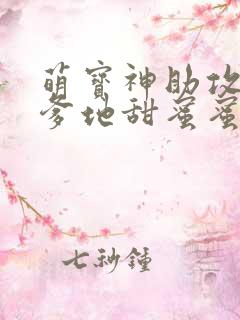 萌寶神助攻
爹地甜蜜蜜
七秒鍾